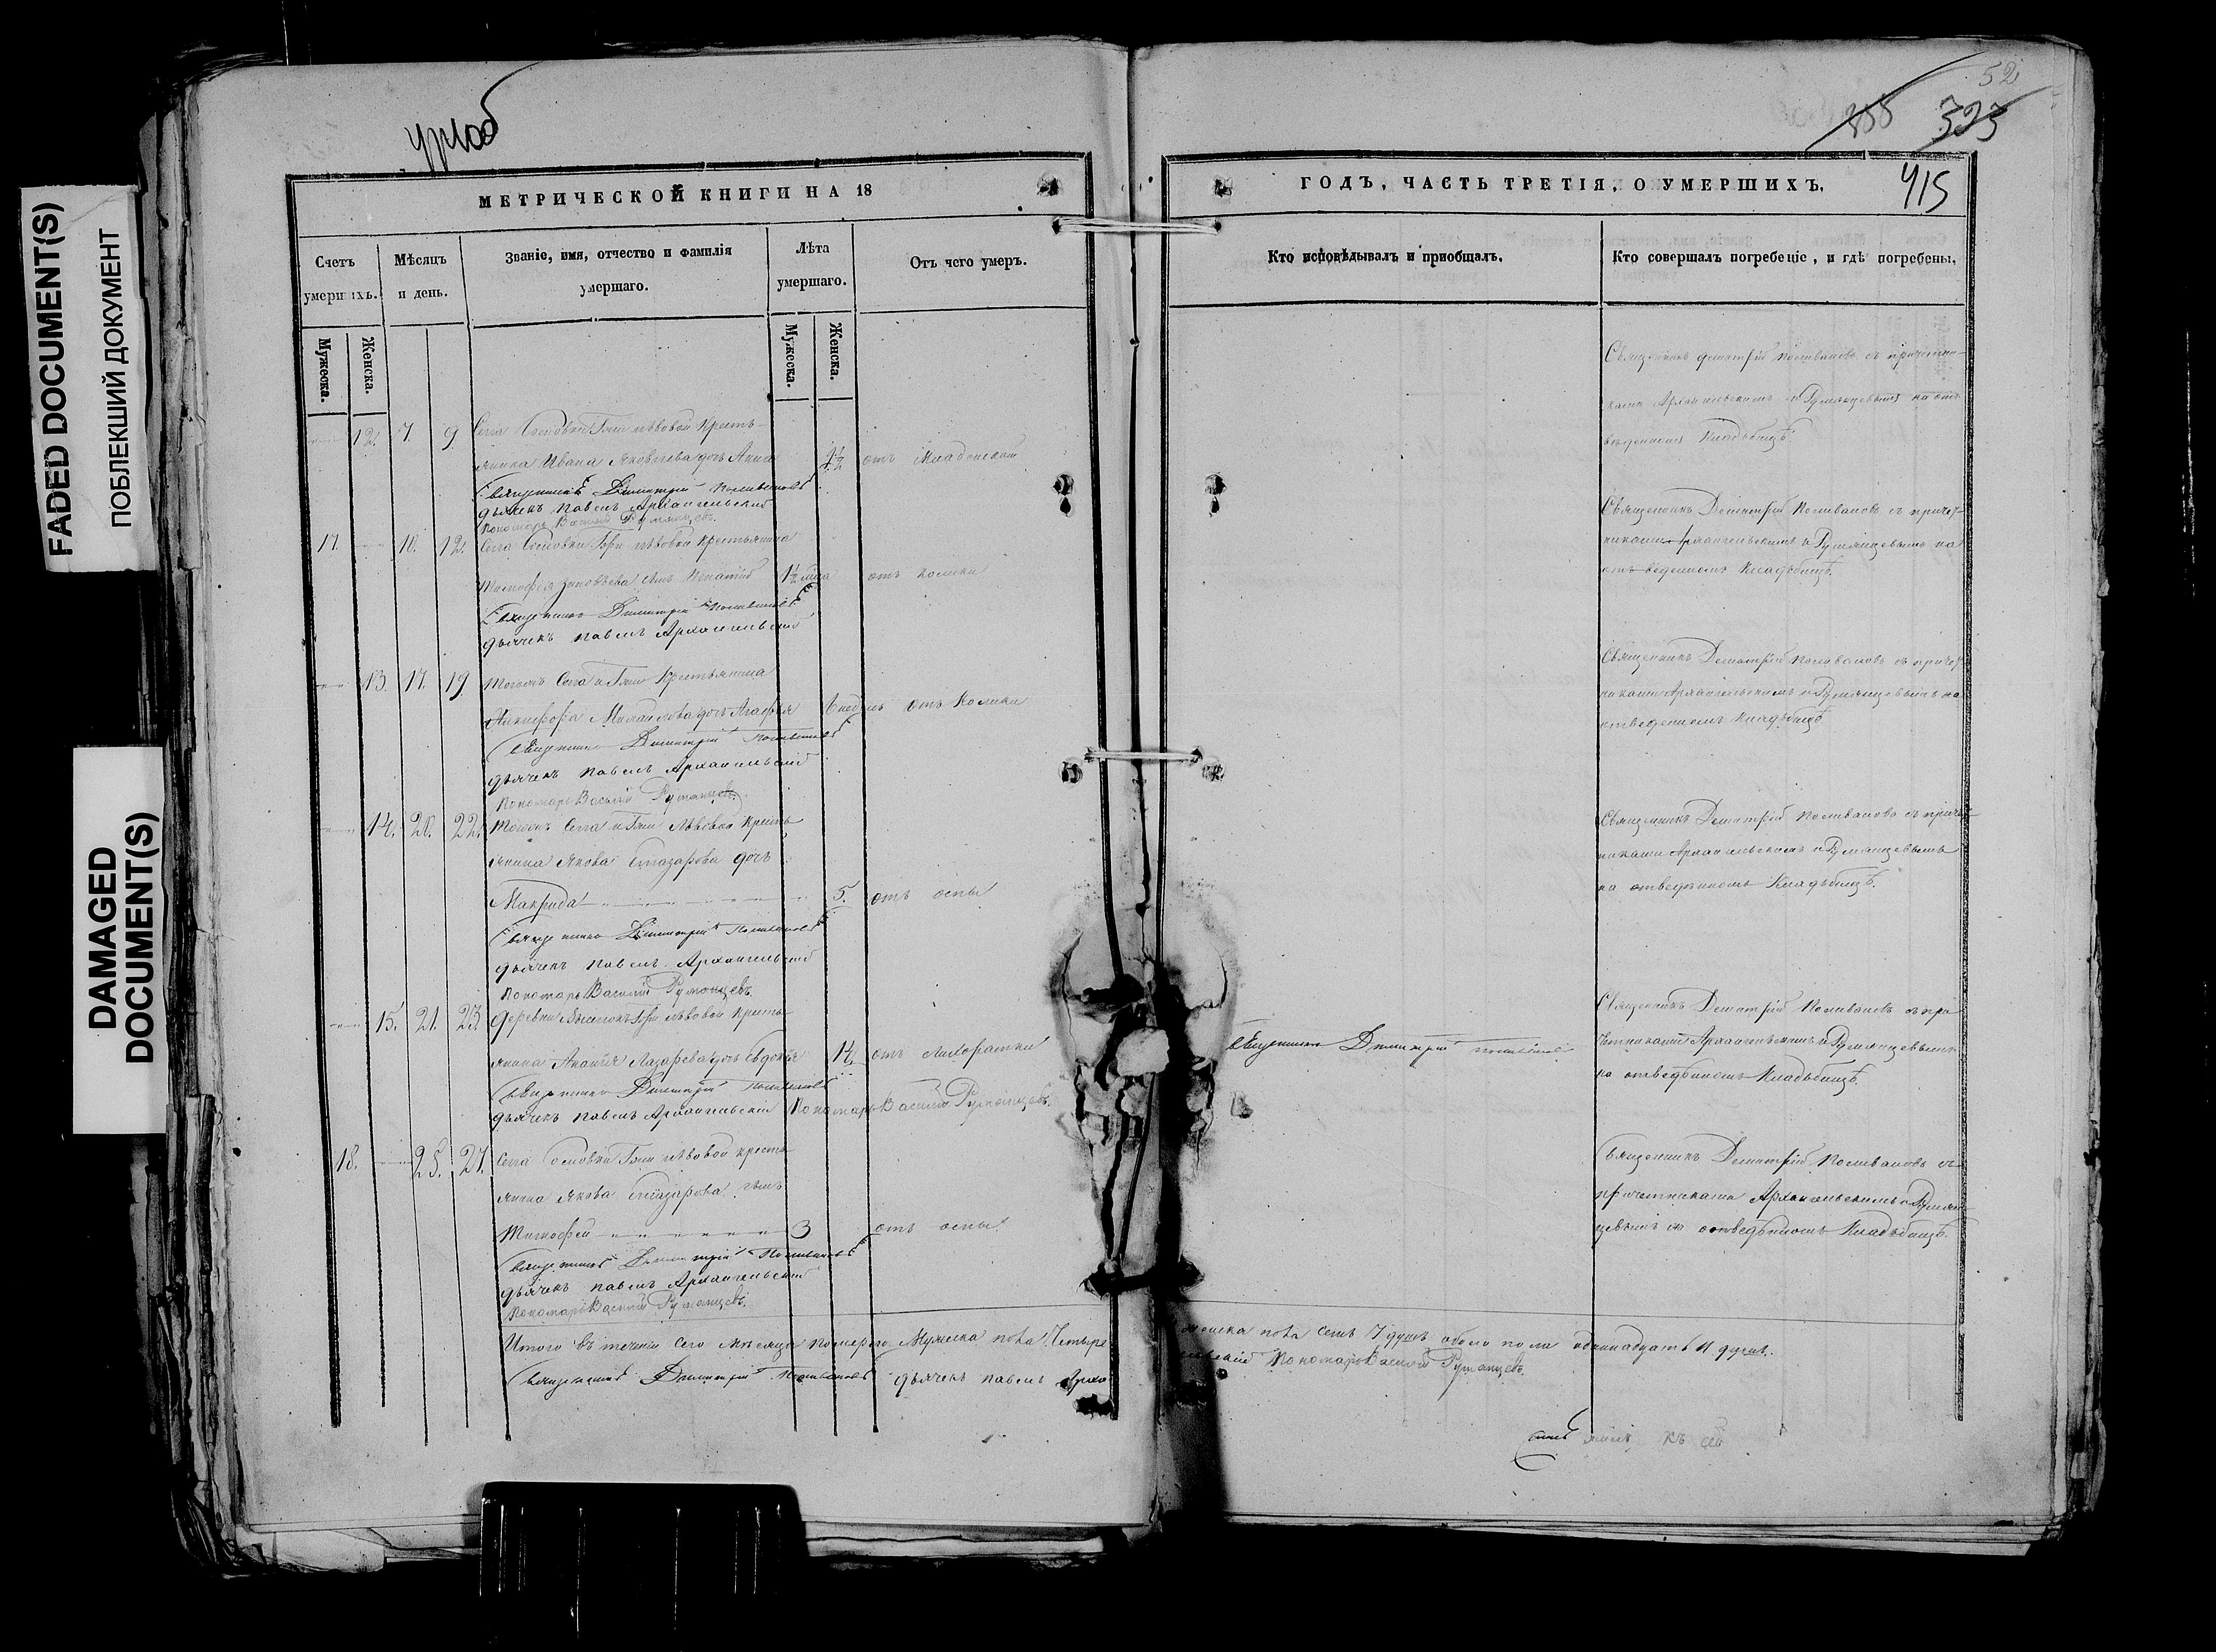 FADED DOCUMENT(S)
ПОБЛЕКШИЙ ДОКУМЕНТ
DAMAGED
DOCUMENT(S)
МЕТРИЧЕСКОЙ КНИГИ НА 18
Счетъ умершихъ.
Мѣсяцъ и день.
Званіе, имя, отчество и фамилія умершаго.
Лѣта умершаго.
Отъ чего умеръ.
Мужеска.
Женска.
Мужеска.
Женска.
12. 7. 9 Села Сосновки Гжи Львовой кресть-
янина Ивана Яковлева дочь Анна 1½ отъ младенской
Священникъ Димитрій Поливановъ
дьячекъ Павелъ Архангельскій
Пономарь Василій Румянцевъ.
17. 10. 12. Села Сосновки Гжи Львовой крестьянина
Тимофея сынъ 1½ отъ колики
Священникъ Димитрій Поливановъ
дьячекъ Павелъ Архангельскій
13. 17. 19 Тогожъ Села и Гжи крестьянина
Никифора Михайлова дочь Агафья 6 недѣль отъ колики
Священникъ Димитрій Поливановъ
дьячекъ Павелъ Архангельскій
Пономарь Василій Румянцевъ.
14. 20. 22. Тогожъ Села и Гжи Львовой кресть-
янина Якова дочь
Макрида 5. отъ оспы
Священникъ Димитрій Поливановъ
дьячекъ Павелъ Архангельскій
Пономарь Василій Румянцевъ.
15. 21. 23. деревни Гжи Львовой кресть-
янина Ананія Лазарева дочь Евдокія 14 отъ лихорадки
Священникъ Димитрій Поливановъ
дьячекъ Павелъ Архангельскій Пономарь Василій Румянцевъ.
18. 25. 27. Села Сосновки Гжи Львовой кресть-
янина Якова сынъ
Тимофей 3 отъ оспы
Священникъ Димитрій Поливановъ
дьячекъ Павелъ Архангельскій
Пономарь Василій Румянцевъ.
Итого въ теченіи сего мѣсяца померло Мужеска пола Четыре
Священникъ Димитрій Поливановъ дьячекъ Павелъ Архан
52
323
415
ГОДЪ, ЧАСТЬ ТРЕТІЯ, О УМЕРШИХЪ.
Кто исповѣдывалъ и пріобщалъ.
Кто совершалъ погребеніе, и гдѣ погребены.
Священникъ Димитрій Поливановъ съ причетни-
ками Архангельскимъ и Румянцевымъ на от-
веденномъ кладбищѣ.
Священникъ Димитрій Поливановъ съ причет-
никами Архангельскимъ и Румянцевымъ на
отведенномъ кладбищѣ.
Священникъ Димитрій Поливановъ съ причет-
никами Архангельскимъ и Румянцевымъ на
отведенномъ кладбищѣ
Священникъ Димитрій Поливановъ съ причет-
никами Архангельскимъ и Румянцевымъ
на отведенномъ кладбищѣ.
Священникъ Димитрій Поливановъ
Священникъ Димитрій Поливановъ съ при-
четниками Архангельскимъ и Румянцевымъ
на отведенномъ кладбищѣ.
Священникъ Димитрій Поливановъ съ
причетниками Архангельскимъ и Румян-
цевымъ на отведенномъ кладбищѣ.
женска пола семь 7 душъ обоего пола одиннадцать 11 душъ.
гельскій Пономарь Василій Румянцевъ.